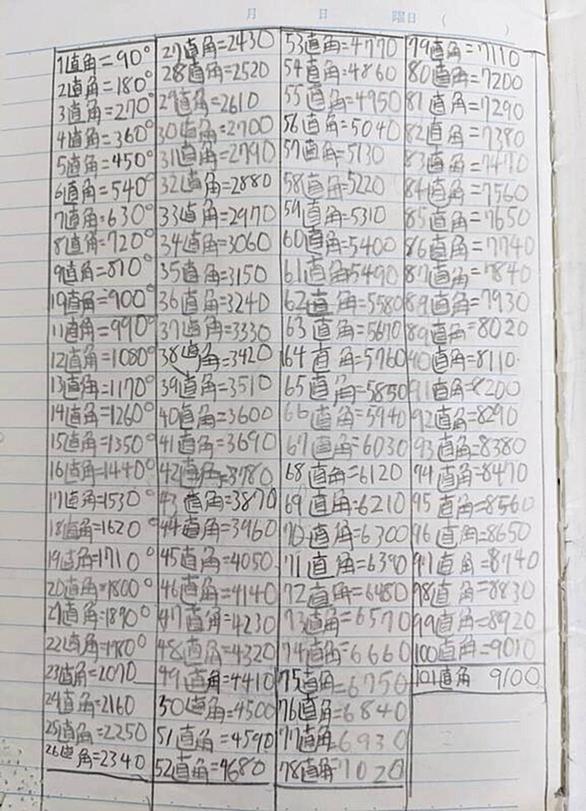 月 日 曜日 ( )
1直角=90°
2直角=180°
3直角=270°
4直角=360°
5直角=450°
6直角=540°
7直角=630°
8直角=720°
9直角=810°
10直角=900°
11直角=990°
12直角=1080°
13直角=1170°
14直角=1260°
15直角=1350°
16直角=1440°
17直角=1530°
18直角=1620°
19直角=1710°
20直角=1800°
21直角=1890°
22直角=1980°
23直角=2070
24直角=2160
25直角=2250
26直角=2340
27直角=2430
28直角=2520
29直角=2610
30直角=2700
31直角=2790
32直角=2880
33直角=2970
34直角=3060
35直角=3150
36直角=3240
37直角=3330
38直角=3420
39直角=3510
40直角=3600
41直角=3690
42直角=3780
43直角=3870
44直角=3960
45直角=4050
46直角=4140
47直角=4230
48直角=4320
49直角=4410
50直角=4500
51直角=4590
52直角=4680
53直角=4770
54直角=4860
55直角=4950
56直角=5040
57直角=5130
58直角=5220
59直角=5310
60直角=5400
61直角=5490
62直角=5580
63直角=5670
64直角=5760
65直角=5850
66直角=5940
67直角=6030
68直角=6120
69直角=6210
70直角=6300
71直角=6390
72直角=6480
73直角=6570
74直角=6660
75直角=6750
76直角=6840
77直角=6930
78直角=7020
79直角=7110
80直角=7200
81直角=7290
82直角=7380
83直角=7470
84直角=7560
85直角=7650
86直角=7740
87直角=7840
88直角=7930
89直角=8020
90直角=8110
91直角=8200
92直角=8290
93直角=8380
94直角=8470
95直角=8560
96直角=8650
97直角=8740
98直角=8830
99直角=8920
100直角=9010
101直角 9100